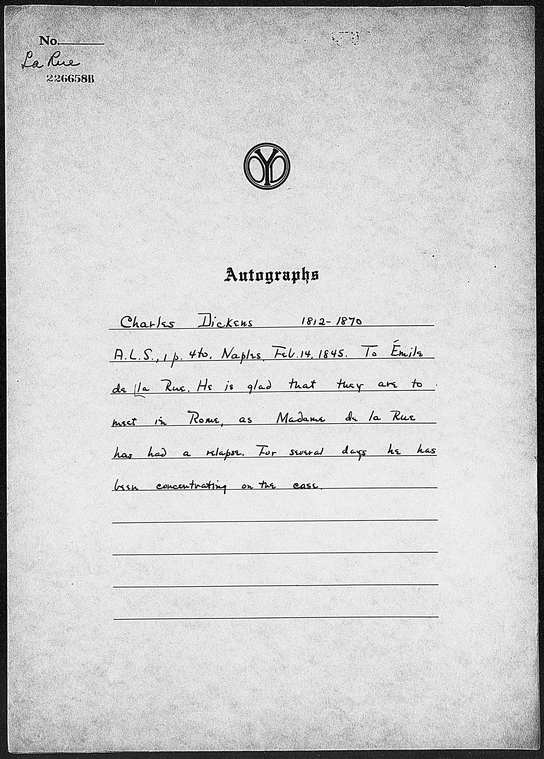 No.
La Rue
226658B
Autographs
Charles Dickens 1812-1870
A.L.S., 1 p. 4to, Naples, Feb. 14, 1845. To Émile
de la Rue. He is glad that they are to
meet in Rome, as Madame de la Rue
has had a relapse. For several days he has
been concentrating on the case.